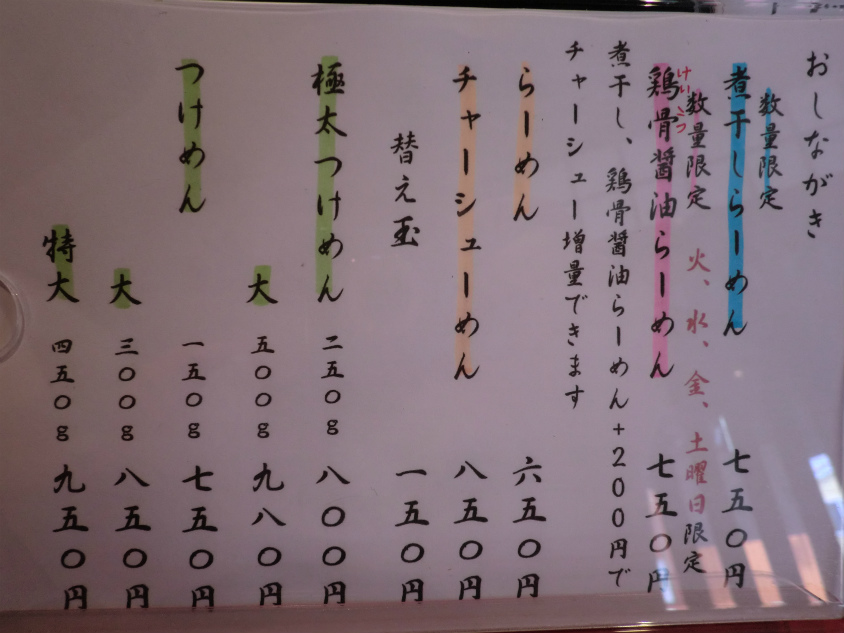 おしながき
数量限定
煮干しらーめん 七五〇円
数量限定 火、水、金、土曜日限定
けいこつ
鶏骨醤油らーめん 七五〇円
煮干し、鶏骨醤油らーめん+200円で
チャーシュー増量できます
らーめん 六五〇円
チャーシューめん 八五〇円
替え玉 一五〇円
極太つけめん 二五〇g 八〇〇円
大 五〇〇g 九八〇円
つけめん 一五〇g 七五〇円
大 三〇〇g 八五〇円
特大 四五〇g 九五〇円